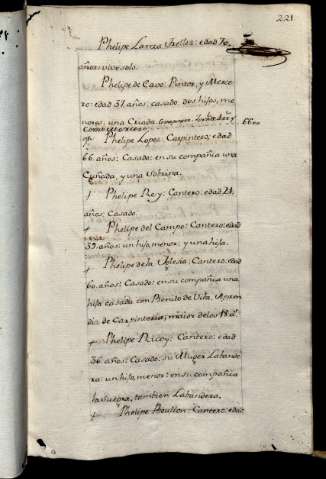 221
Phelipe Garcia Trelles: edad 70,
años: vive solo.
Phelipe de Cavo: Pintor, y Merce
ro: edad 37, años, casado dos hijos, me
nores, una Criada
6600
Phelipe Lopez Carpintero; edad
66, años: Casado: en su compañia una
Cuñada, y una Sobrina.
Phelipe Rey: Cantero: edad 24,
años, Casado.
Phelipe del Campo: Cantero: edad
39, años: un hijo menor: y una hija.
Phelipe de la Yglesia: Cantero: edad
60, años: Casado: en su compañia una
hija casada con Benito de Vila, Apren
diz de Carpinteria; maior de los 18 as
Phelipe Ricoy: Cantero: edad
36, años: Casado: su Muger Labande
ra: un hijo menor: en su compañia
la suegra, tambien Labandera.
Phelipe Boullon: Cantero: edad